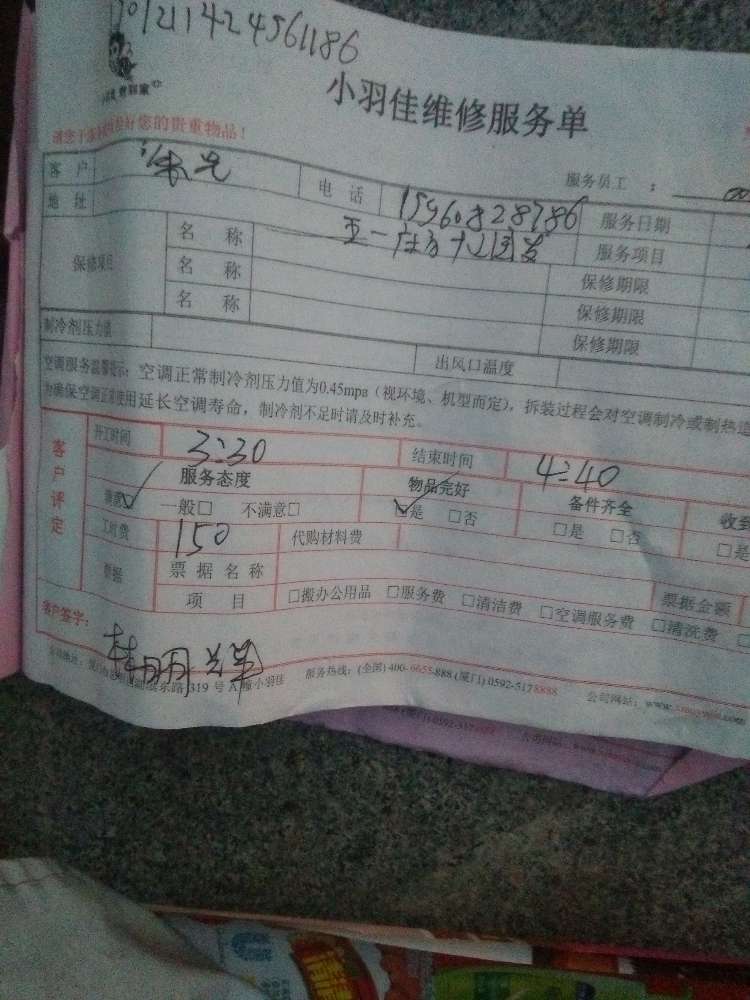 201211424561186
小羽佳维修服务单
请您于服务前保管好您的贵重物品！
服务员工 ：
客 户 电 话 15960828786 服务日期
地 址 服务项目
保修项目 名 称 保修期限
名 称 保修期限
名 称 保修期限
制冷剂压力值 出风口温度
空调服务温馨提示：空调正常制冷剂压力值为0.45mpa（视环境、机型而定），拆装过程会对空调制冷或制热造
为确保空调正常使用延长空调寿命，制冷剂不足时请及时补充。
客户评定 开工时间 3:30 结束时间 4:40
服务态度 物品完好 备件齐全 收到
满意 一般□ 不满意□ □是 □否 □是 □否 □是
工时费 150 代购材料费
票据 票 据 名 称 票据金额
项 目 □搬办公用品 □服务费 □清洁费 □空调服务费 □清洗费
客户签字：
公司地址： 东路 319 号 小羽佳 服务热线：(全国) 400-6655-888 (厦门) 0592-5178888 公司网站：www.